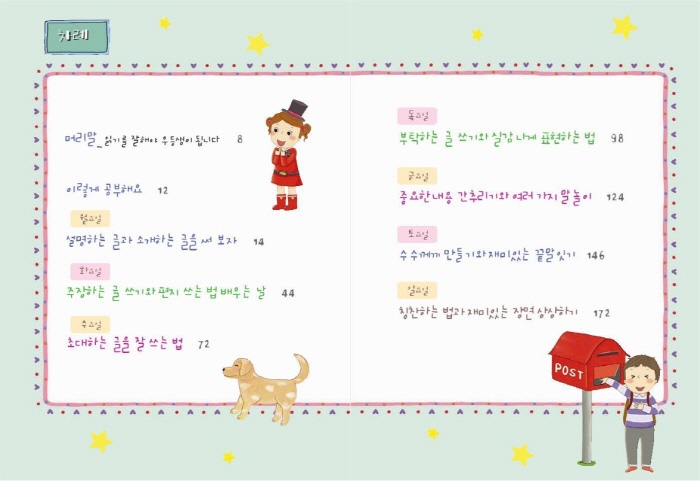 차례
머리말_읽기를 잘해야 우등생이 됩니다 8
이렇게 공부해요 12
월요일
설명하는 글과 소개하는 글을 써 보자 14
화요일
주장하는 글 쓰기와 편지 쓰는 법 배우는 날 44
수요일
초대하는 글을 잘 쓰는 법 72
목요일
부탁하는 글 쓰기와 실감 나게 표현하는 법 98
금요일
중요한 내용 간추리기와 여러 가지 말놀이 124
토요일
수수께끼 만들기와 재미있는 끝말잇기 146
일요일
칭찬하는 법과 재미있는 장면 상상하기 172
POST